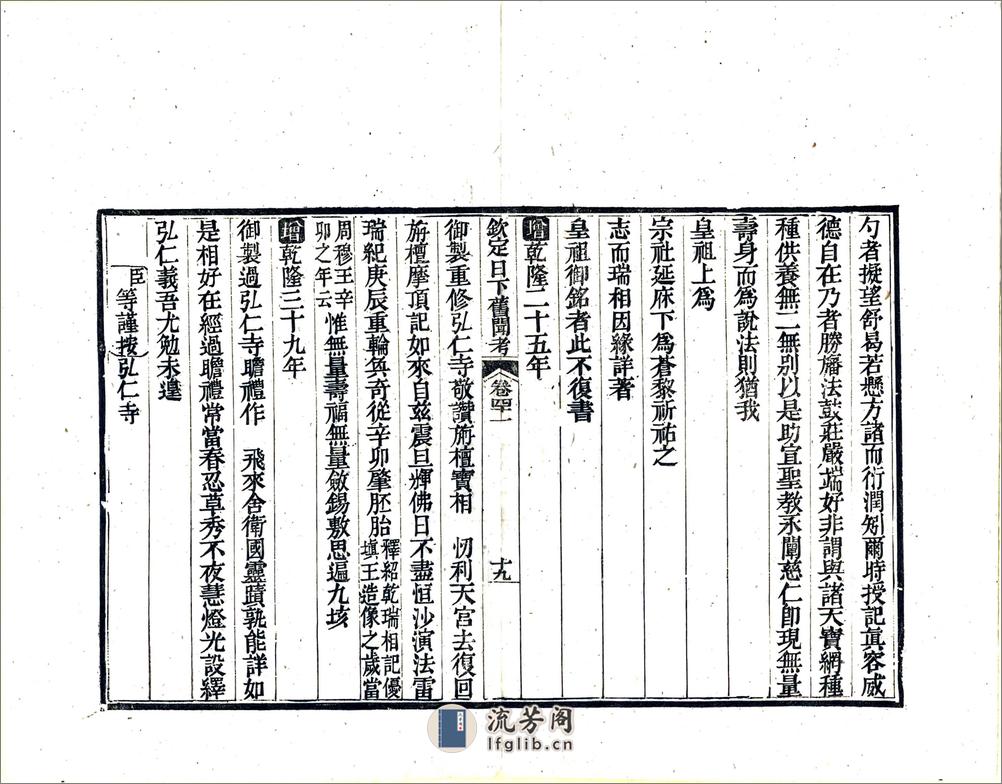 勺者擬望舒曷若懸方諸而衍潤矧爾時授記眞容威
德自在乃者勝旛法鼓莊嚴端好非謂與諸天寶網種
種供養無二無別以是助宣聖教丞闡慈仁卽現無量
壽身而爲說法則猶我
皇祖上爲
宗社延庥下爲蒼黎祈祐之
志而瑞相因緣詳著
皇祖御銘者此不復書
增乾隆二十五年
欽定日下舊聞考 卷四十一 十九
御製重修弘仁寺敬讚旃檀寶相 忉利天宮去復回
旃檀摩頂記如來自兹震旦輝佛日不盡恒沙演法雷
瑞紀庚辰重輪奐奇從辛卯肇胚胎釋紹乾瑞相記優塡王造像之歲當
周穆王辛卯之年云惟無量壽福無量斂錫敷思遍九垓
增乾隆三十九年
御製過弘仁寺瞻禮作 飛來舍衛國靈蹟孰能詳如
是相好在經過瞻禮常當春忍草秀不夜慧燈光設繹
弘仁義吾尤勉未遑
臣等謹按弘仁寺
流芳阁
lfglib.cn